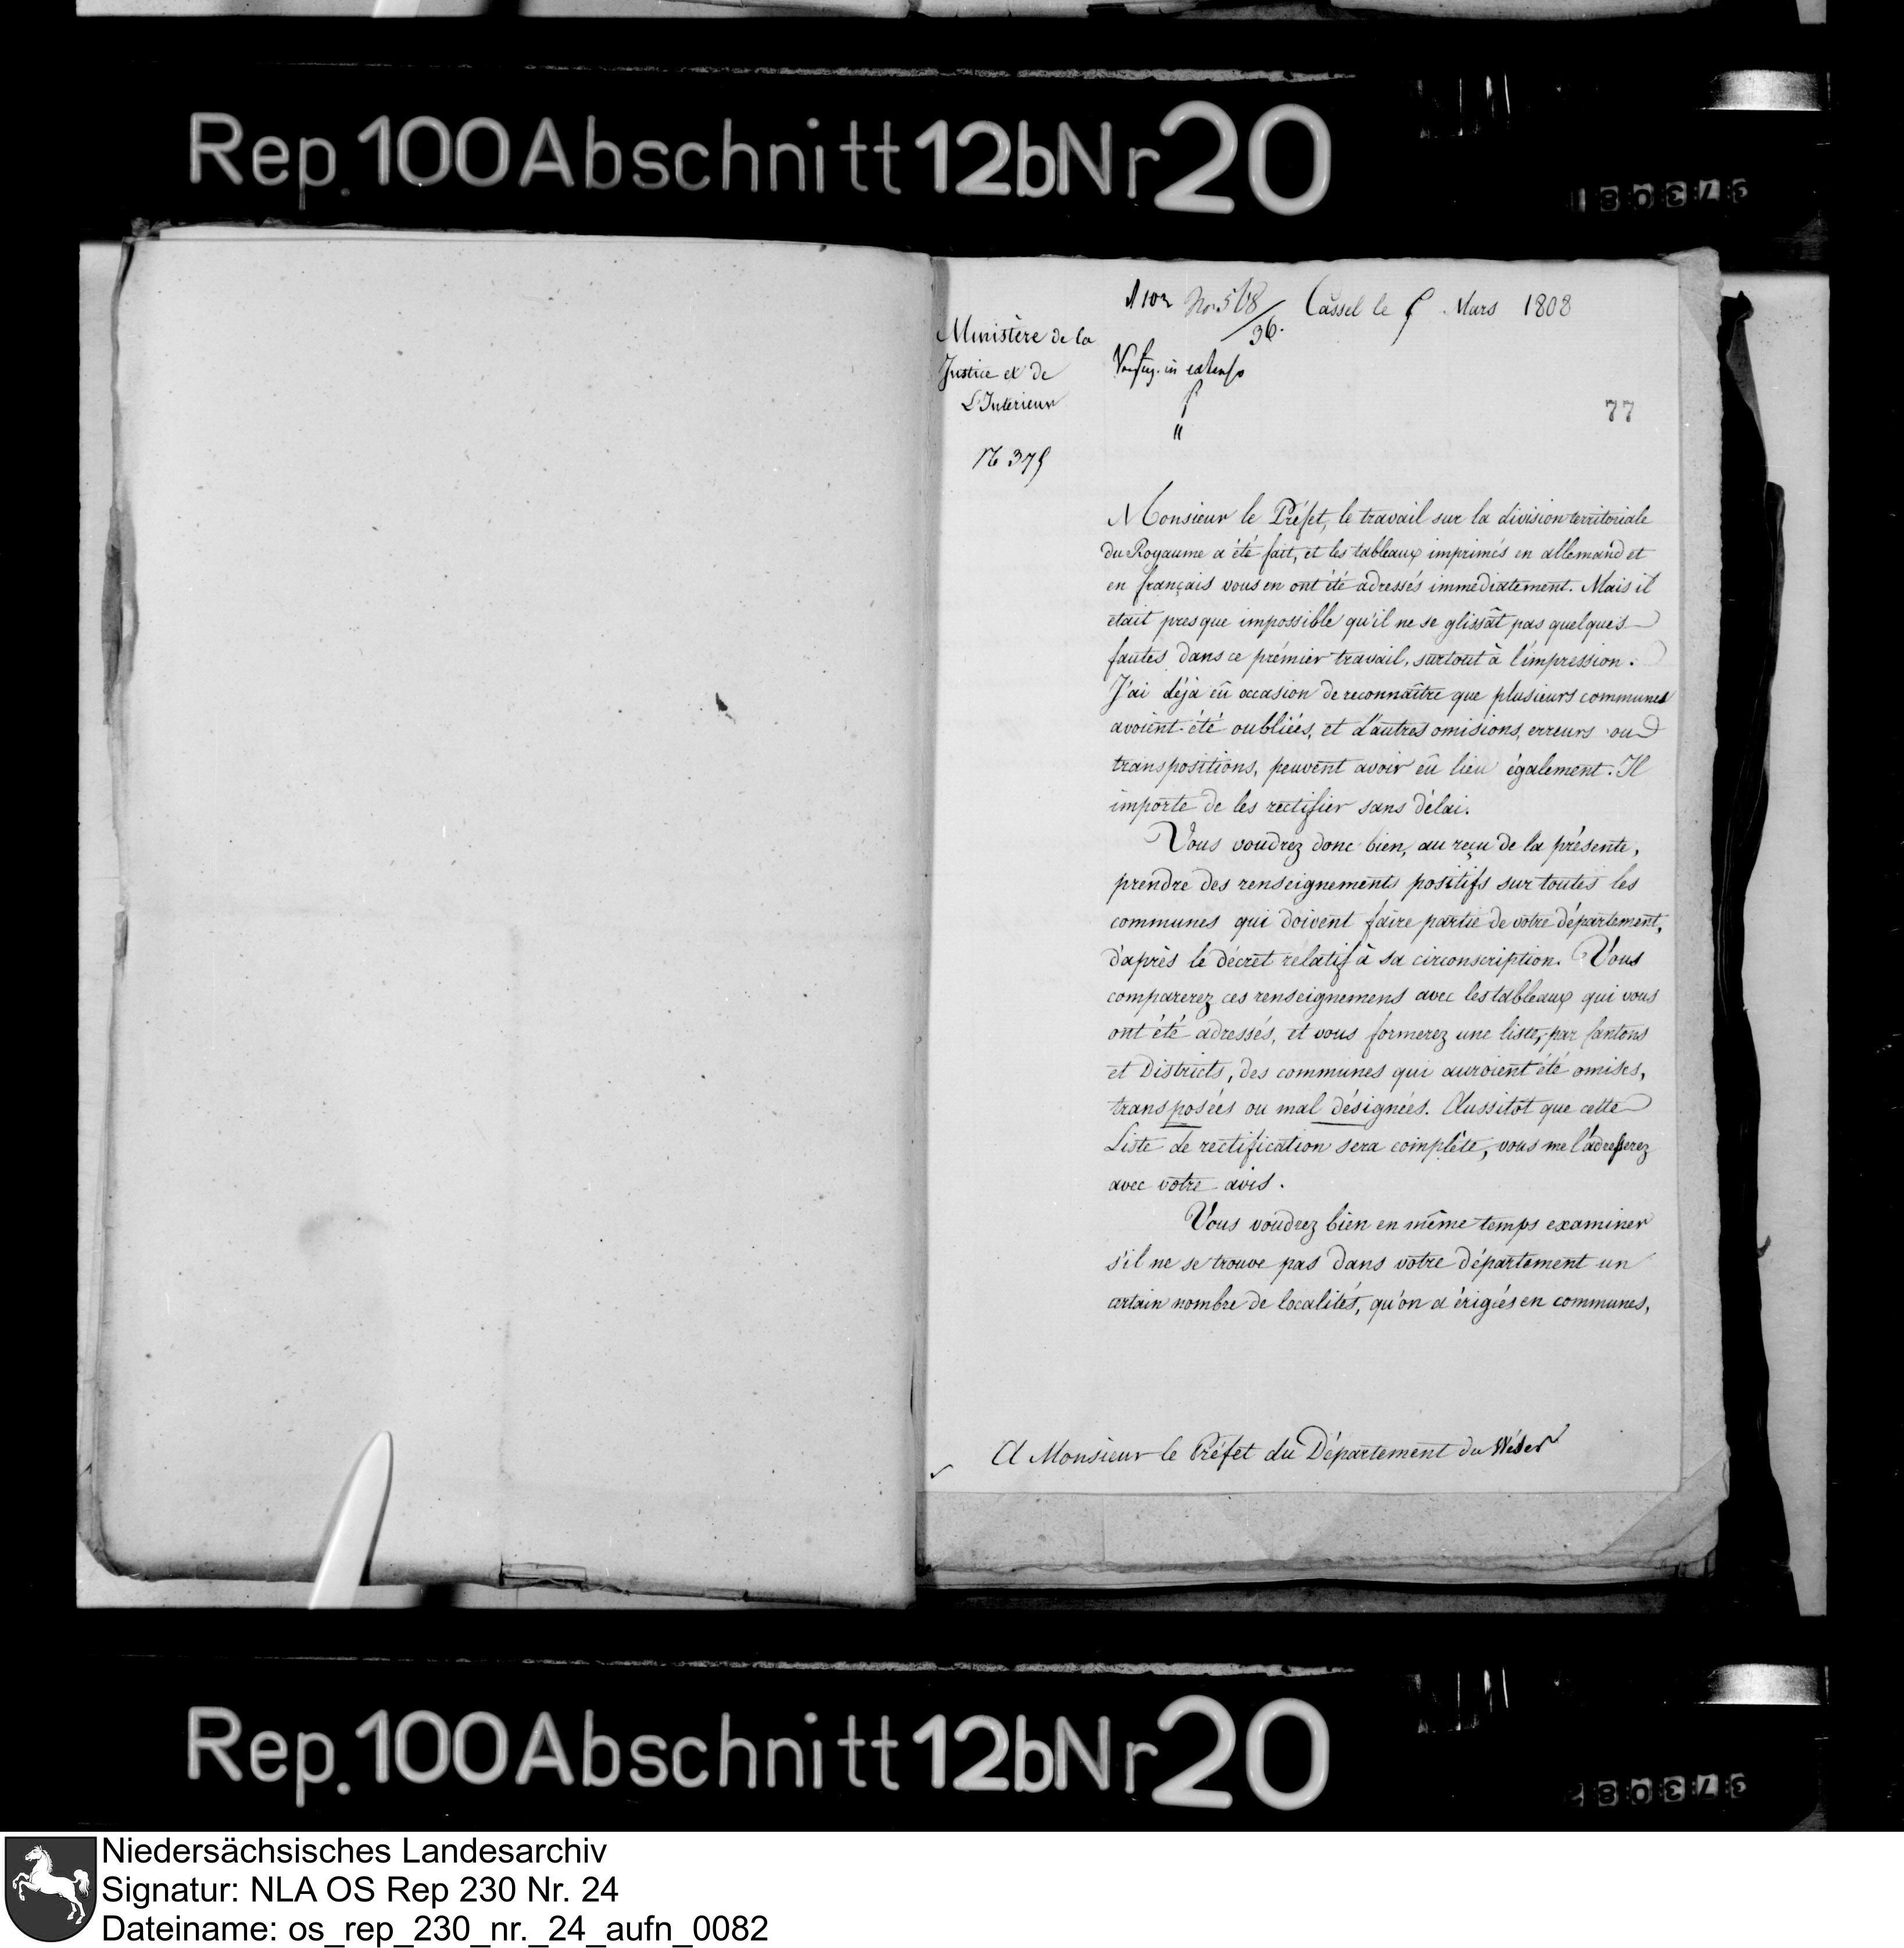 Rep. 100 Abschnitt 12b Nr 20
Cassel le Mars 1808
Ministère de la
Justice et de
L'Interieur
in extenso
77
Monsieur le Préfet, le travail sur la division territoriale
du Royaume a été fait, et les tableaux imprimés en allemand et
en français vous en ont été adressés immédiatement. Mais il
etait presque impossible qu'il ne se glissât pas quelques
fautes dans ce prémier travail, surtout à l'impression.
J'ai déjà eû occasion de reconnaître que plusieurs communes
avoient été oubliées, et d'autres omisions, erreurs ou
transpositions, peuvent avoir eû lieu également. Il
importe de les rectifier sans délai.
Vous voudrez donc bien, au reçu de la présente,
prendre des renseignements positifs sur toutes les
communes qui doivent faire partie de votre département,
d'après le décret rélatif à sa circonscription. Vous
comparerez ces renseignemens avec les tableaux qui vous
ont été adressés, et vous formerez une liste, par Cantons
et Districts, des communes qui auroient été omises,
transposées ou mal désignées. Aussitot que cette
Liste de rectification sera complète, vous me l'adresserez
avec votre avis.
Vous voudrez bien en même temps examiner
s'il ne se trouve pas dans votre département un
certain nombre de localités, qu'on a érigées en communes,
A Monsieur le Préfet du Département du Wéser
Rep. 100 Abschnitt 12b Nr 20
Niedersächsisches Landesarchiv
Signatur: NLA OS Rep 230 Nr. 24
Dateiname: os_rep_230_nr._24_aufn_0082